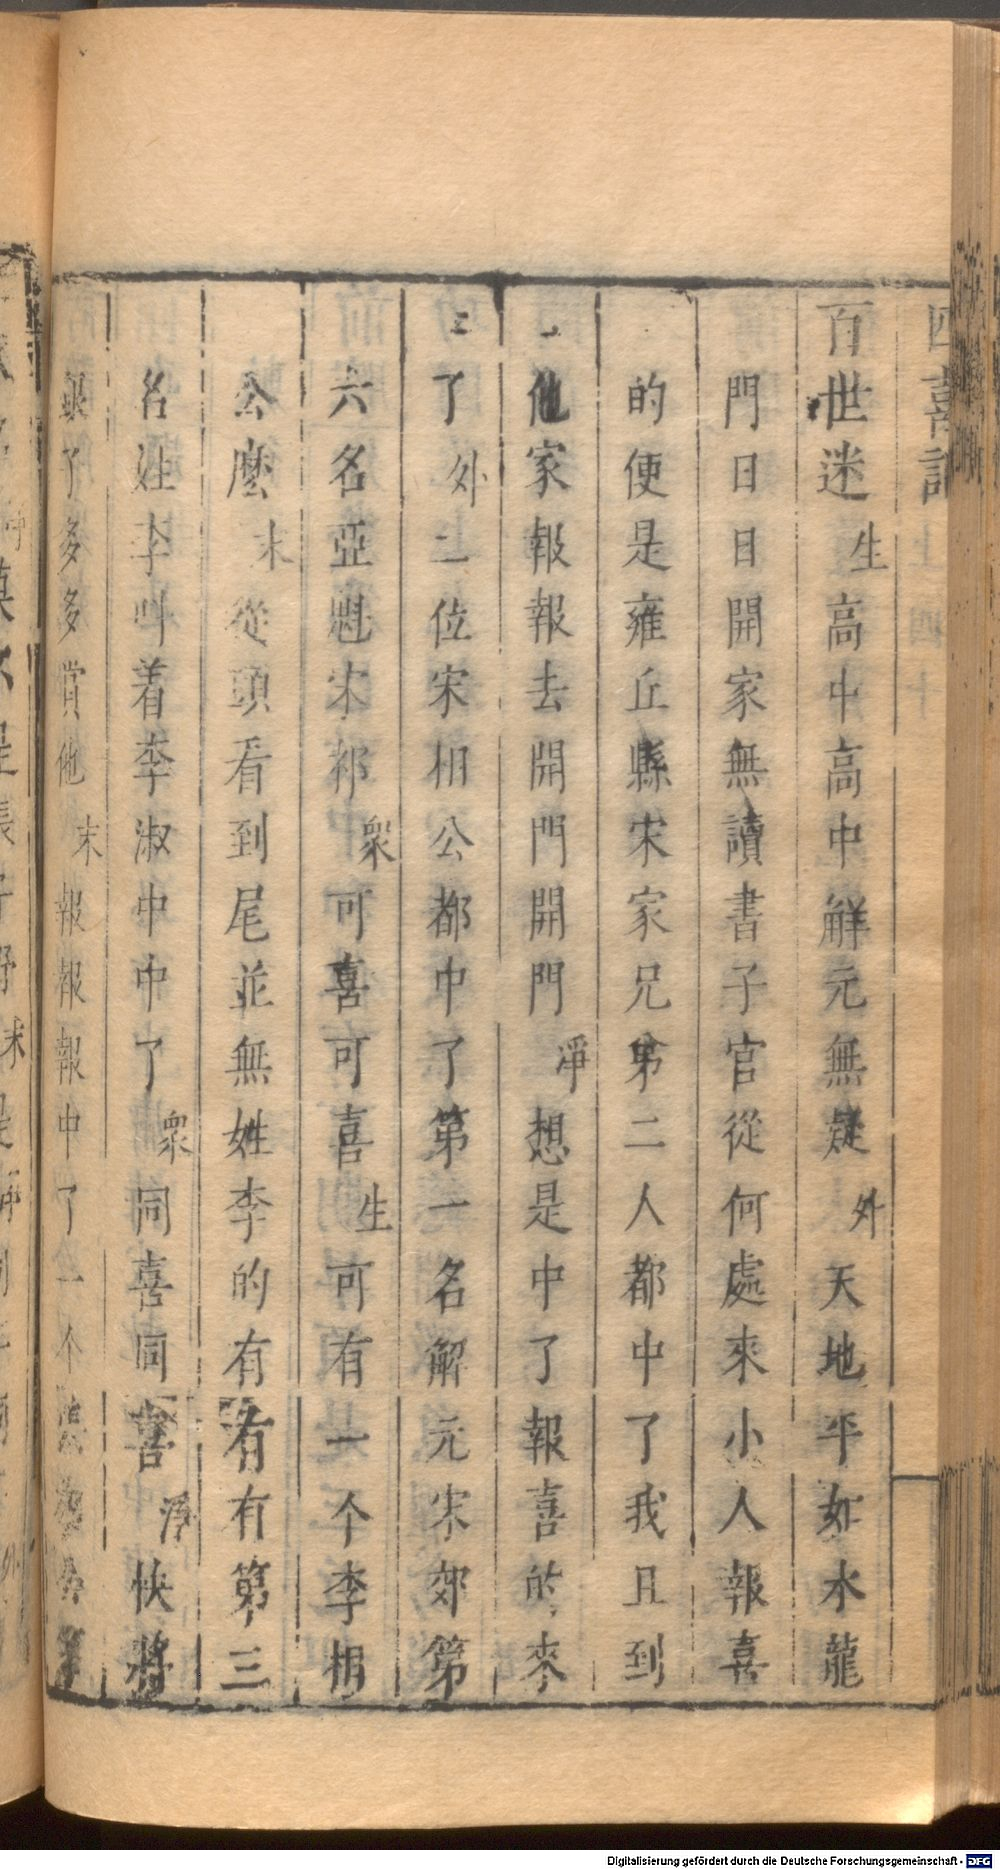 四喜記
百世迷生高中高中解元無疑外天地平如水龍
門日日開家無讀書子官從何處來小人報喜
的便是雍丘縣宋家兄弟二人都中了我且到
他家報報去開門開門淨想是中了報喜的來
了外二位宋相公都中了第一名解元宋郊第
六名亞魁宋祁衆可喜可喜生可有一个李相
公麽末從頭看到尾並無姓李的有有有第三
名姓李叫着李淑中中了衆同喜同喜淨快將
了多多賞他末報報報中了一个
Digitalisierung gefördert durch die Deutsche Forschungsgemeinschaft - DFG